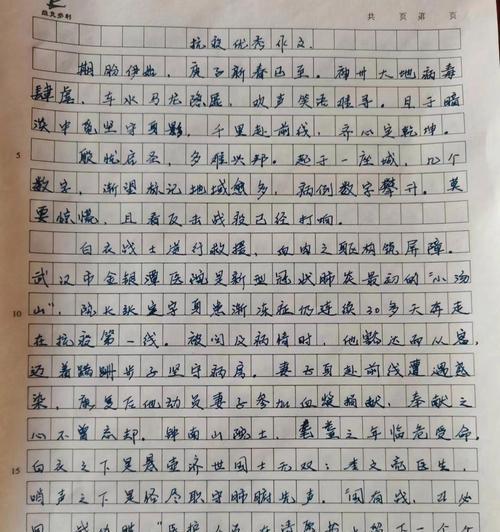 共 页 第 页
抗疫优秀作文
期盼伊始，庚子新春已至。神州大地病毒
肆虐，车水马龙隐匿，欢声笑语难寻。且于暗
淡中觅坚守身影，千里赴前线，齐心定乾坤。
殷忧启圣，多难兴邦。起于一座城，几个
数字，渐望标记地域愈多，病例数字攀升。莫
要惊慌，且看反击战役已经打响。
白衣战士逆行救援，血肉之躯构筑屏障。
武汉市金银潭医院是新型冠状肺炎最初的“小汤
10 山”，院长张定宇身患渐冻症仍连续30多天奔走
在抗疫第一线。被问及病情时，他豁达而从容，
迈着蹒跚步子坚守病房。妻子身赴前线遭遇感
染，康复后他动员妻子参加血浆捐献，奉献之
心不曾忘却。钟南山院士，耄耋之年临危受命，
15 白衣之下是悬壶济世国士无双；李文亮医生，
哨声之下是恪尽职守肺腑先声。“国有战，